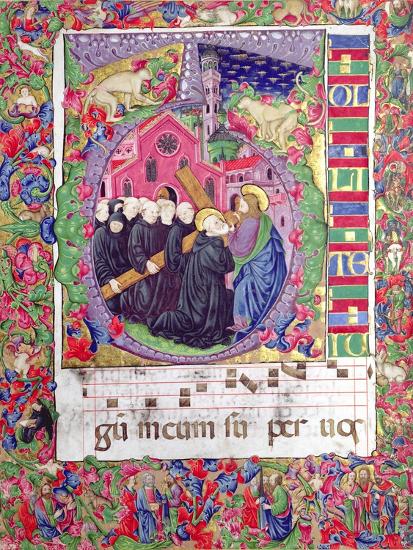 T
OL
LI
TE
IU
gũ meum su per uos